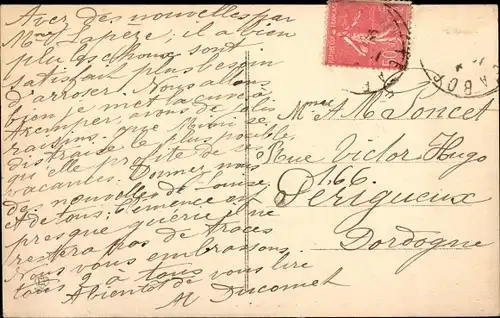 Avez des nouvelles par
Mme Lapèze; il a bien
plu les choux sont
satisfait plus besoin
d'arroser. Nous allons
bien je met la cure à
raisins. que Mimi se
distraie le plus possible,
qu'elle profite de ses
vacances. Donnez nous
des nouvelles de Louise
et de tous; Clémence est
presque guérie il ne
restera pas de traces
Nous vous embrassons
tous 2 à tous
A bientôt de vous lire
M Ducomet
50
Mme A Mr Poncet
Rue Victor Hugo
166
Périgueux
Dordogne